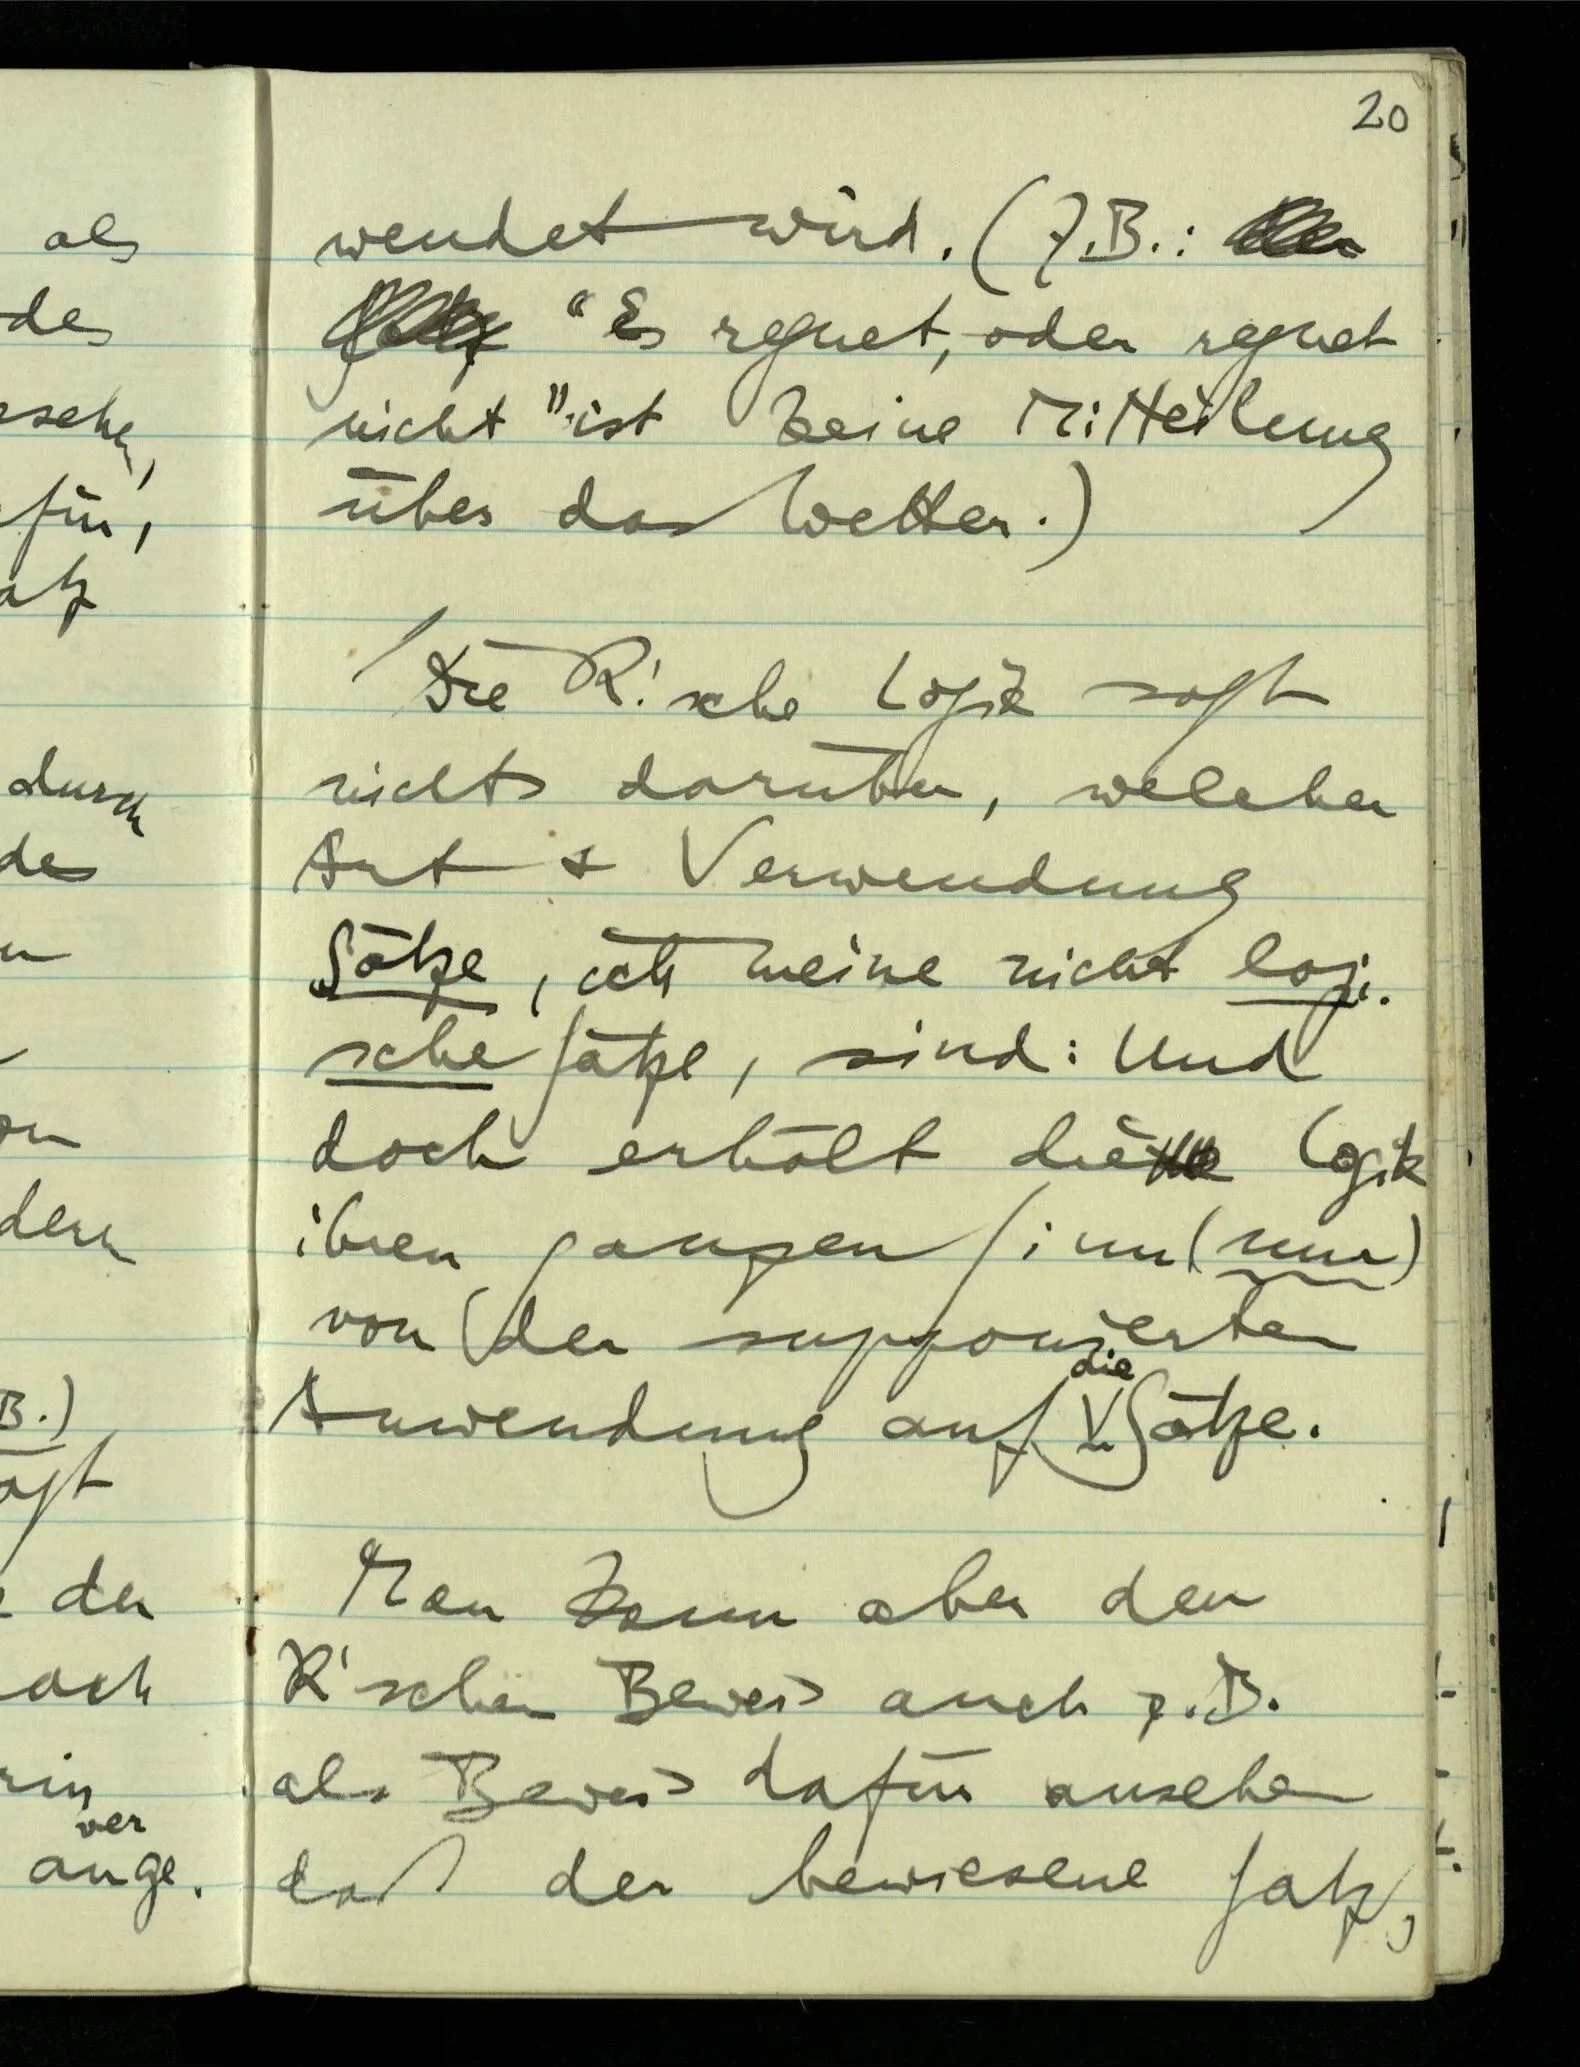 20
als
des
für,
atz
durch
de
on
dern
B.)
der
ver
ange.
wendet wird. (Z.B.:
"Es regnet, oder regnet
nicht" ist keine Mitteilung
über das Wetter.)
Die R.'sche Logik sagt
nichts darüber, welcher
Art & Verwendung
Sätze, ich meine nicht logi-
sche Sätze, sind: Und
doch erhält die Logik
ihren ganzen Sinn (nur)
von der supponierten
Anwendung auf die Sätze.
Man kann aber den
R'schen Beweis auch z.B.
als Beweis dafür ansehen
daß der bewiesene Satz,